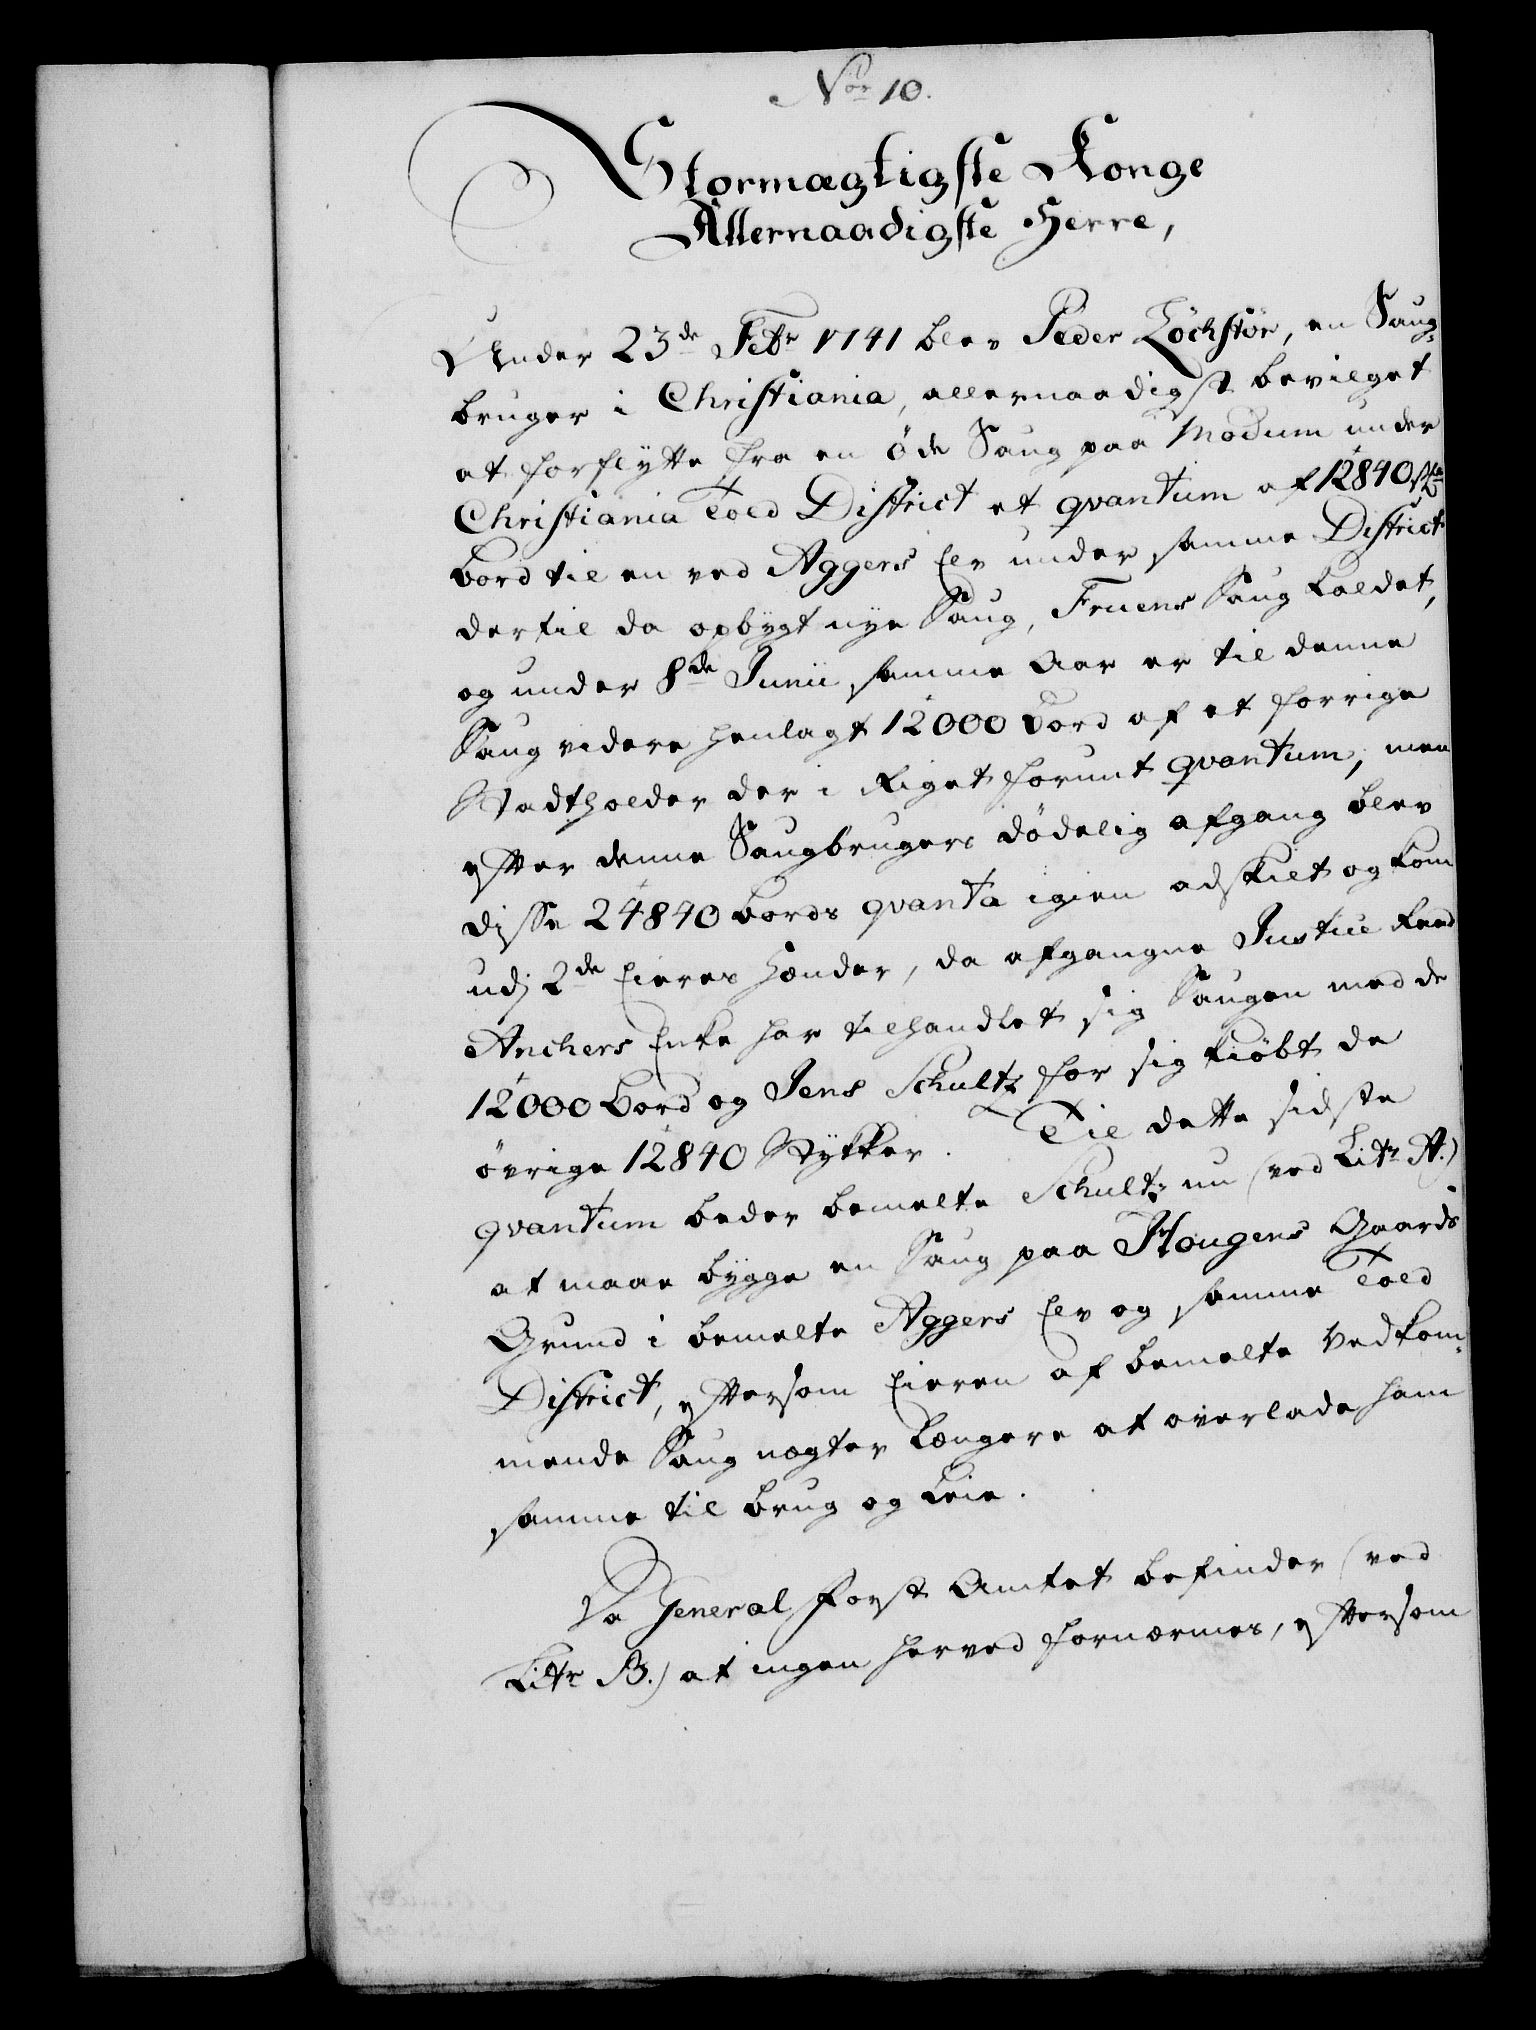 Nor 10.
Stormægtigste Konge
Allernaadigste Herre,
Under 23de Febr 1741 blev Peder Löchstör, en Saug-
bruger i Christiania, allernaadigst bevilget
at forflytte fra en öde Saug paa Modum under
Christiania Told District et qvantum af 12840 st:
bord til en ved Aggers Elv under samme District
dertil da opbygt nye Saug, Fruens Saug kaldet,
og under 8de Junii samme Aar er til denne
Saug videre henlagt 12000 bord af et forrige
Stadtholder der i Riget forunt qvantum, men
efter denne Saugbrugers dödelig afgang blev
disse 24840 bords qvanta igien adskilt og kom
udj 2de Eieres Hænder, da afgangne Justice Raad
Anchers Enke har tilhandlet sig Saugen med de
12000 bord og Jens Schultz for sig kiöbt de
övrige 12840 Stykker. Til dette sidste
qvantum beder bemelte Schultz nu (ved Litr A.)
at maae bygge en Saug paa Hougens Gaards
Grund i bemelte Aggers Elv og samme Told
District, eftersom Eieren af bemelte Vedkom-
mende Saug nægter længere at overlade ham
samme til brug og Leie.
Da General Forst Amtet befinder (ved
Litr B.) at ingen herved fornærmes, eftersom